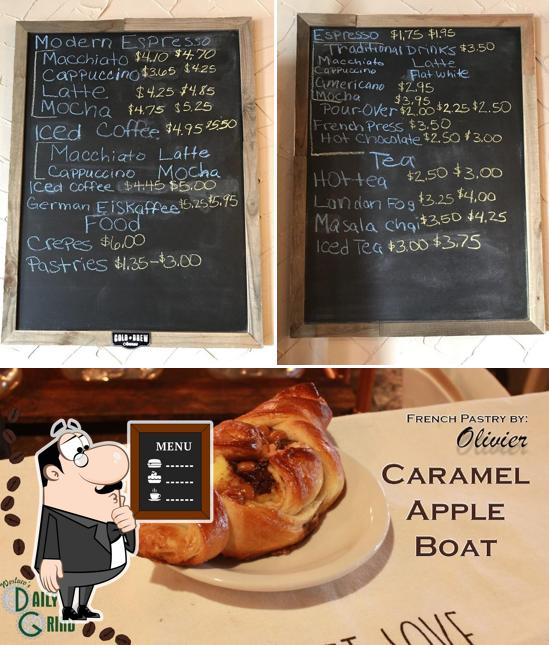 Modern Espresso
Macchiato $4.10 $4.70
Cappuccino $3.65 $4.25
Latte $4.25 $4.85
Mocha $4.75 $5.25
Iced Coffee $4.95 $5.50
Macchiato Latte
Cappuccino Mocha
Iced coffee $4.45 $5.00
German Eiskaffee $5.25 $5.95
Food
Crepes $6.00
Pastries $1.35-$3.00
COLD BREW
Espresso $1.75 $1.95
Traditional Drinks $3.50
Macchiato Latte
Cappuccino Flat white
Americano $2.95
Mocha $3.95
Pour-Over $2.00 $2.25 $2.50
French Press $3.50
Hot Chocolate $2.50 $3.00
Tea
Hot tea $2.50 $3.00
London Fog $3.25 $4.00
Masala Chai $3.50 $4.25
Iced Tea $3.00 $3.75
FRENCH PASTRY BY:
Olivier
CARAMEL
APPLE
BOAT
MENU
DAILY
GRIND
LOVE